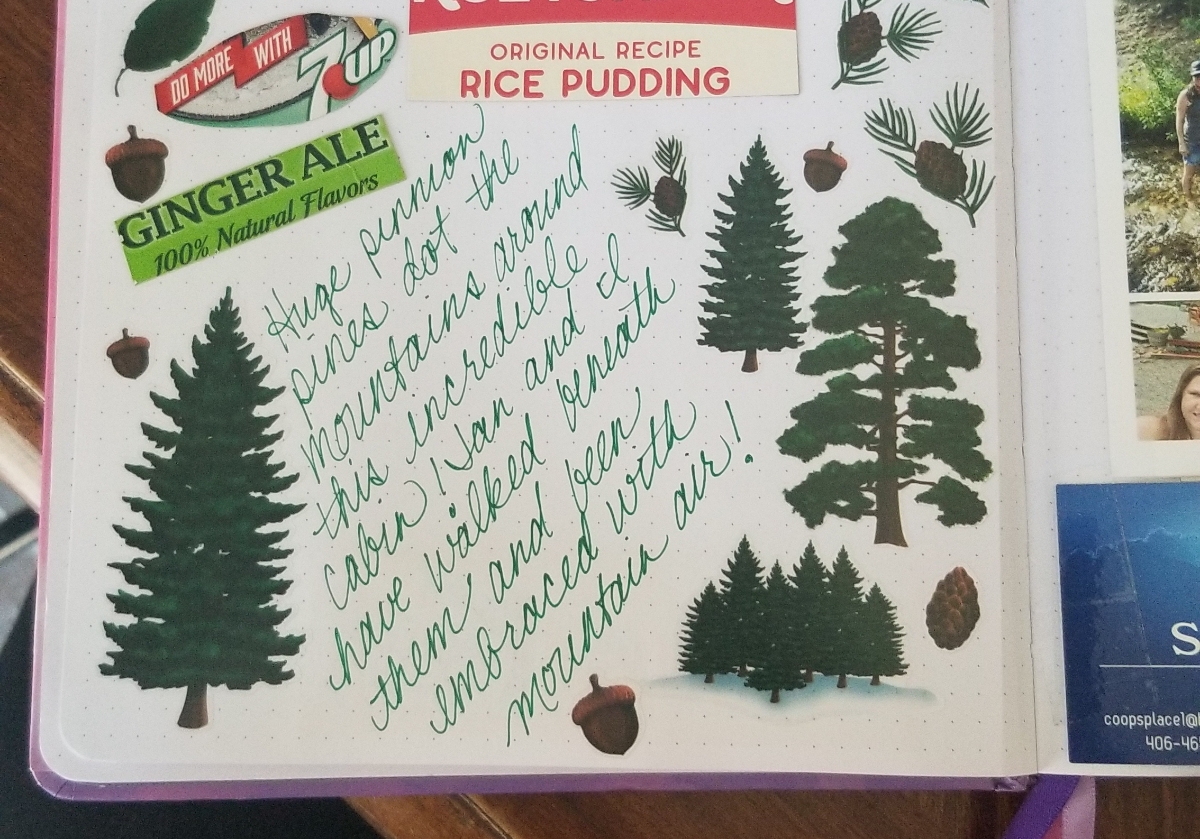 DO MORE WITH 7UP
ORIGINAL RECIPE
RICE PUDDING
GINGER ALE
100% Natural Flavors
Huge pinnion
pines dot the
mountains around
this incredible
cabin! Jan and I
have walked beneath
them and been
embraced with
mountain air!
S
coopsplace1@
406-46